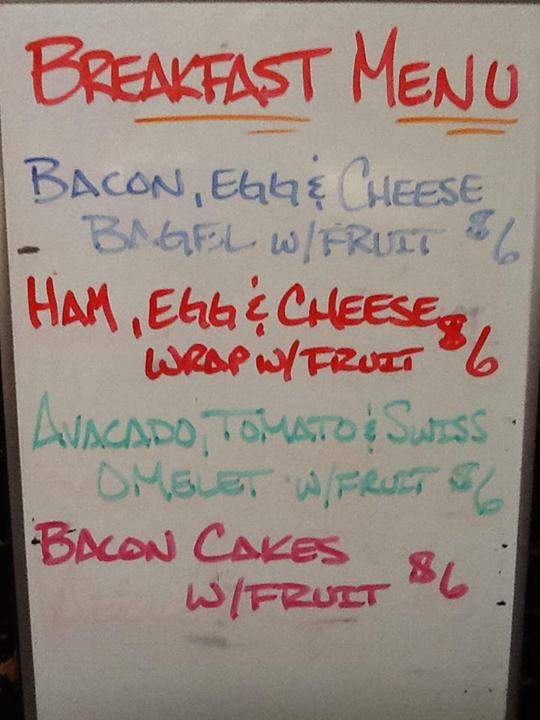 BREAKFAST MENU
BACON, EGG & CHEESE
BAGEL W/FRUIT $6
HAM, EGG & CHEESE
WRAP W/FRUIT $6
AVACADO, TOMATO & SWISS
OMELET W/FRUIT $6
BACON CAKES
W/FRUIT $6